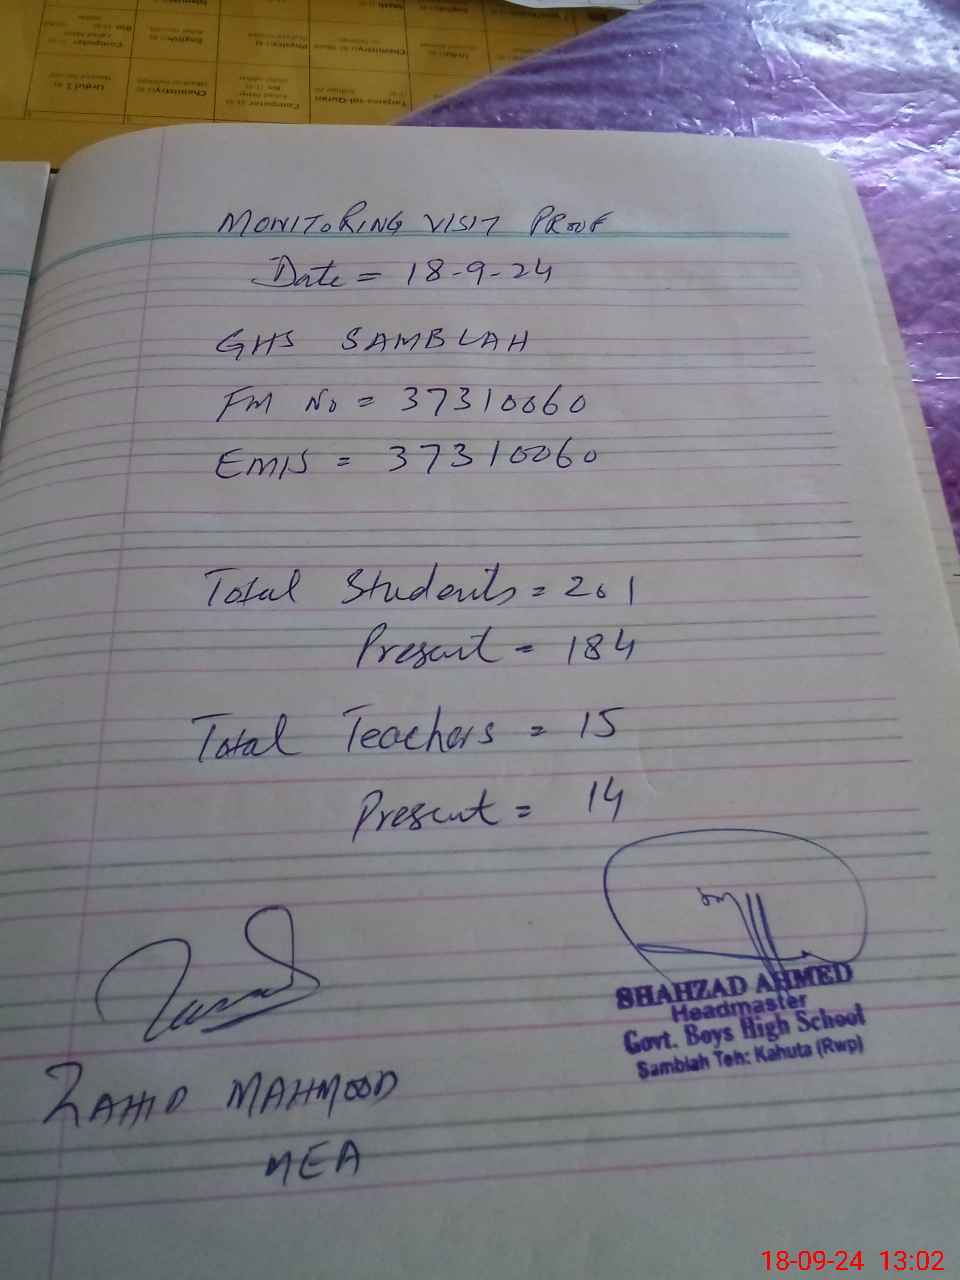 MONITORING VISIT PROOF
Date = 18-9-24
GHS SAMBLAH
FM No = 37310060
EMIS = 37310060
Total Students = 201
Present = 184
Total Teachers = 15
Present = 14
SHAHZAD AHMED
Headmaster
Govt. Boys High School
Samblah Teh: Kahuta (Rwp)
ZAHID MAHMOOD
MEA
18-09-24 13:02